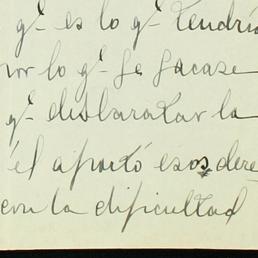 qᵉ es lo qᵉ tendría
por lo qᵉ se sacase
qᵉ desbaratar la
él aportó esos dere
con la dificultad